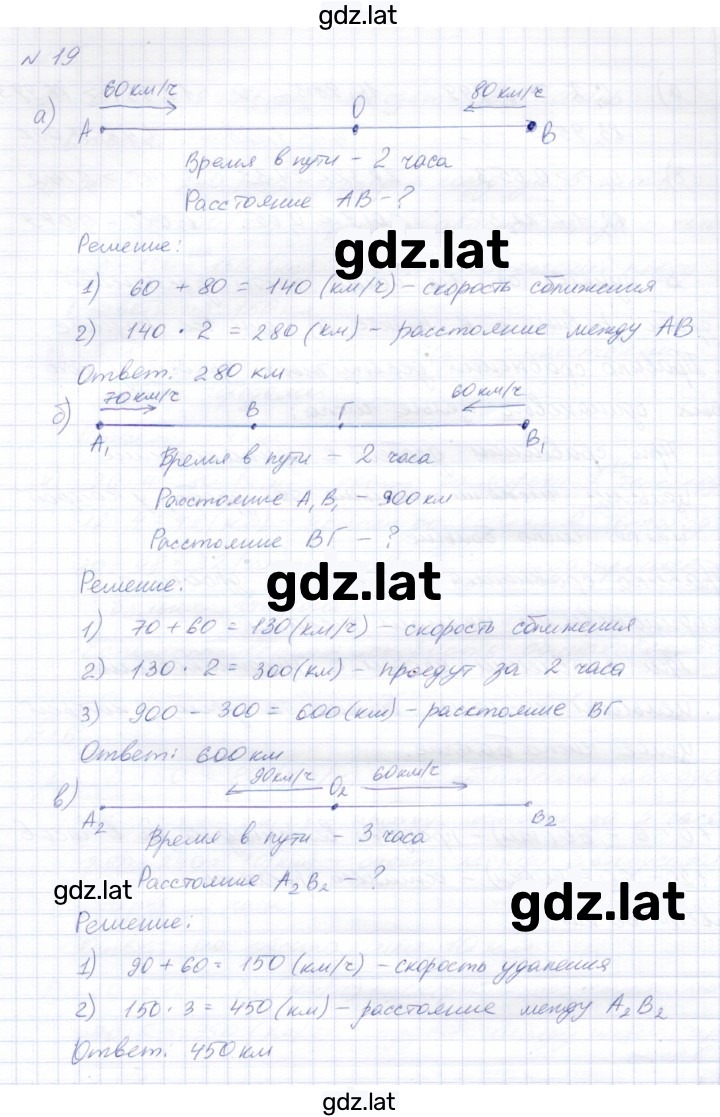 gdz.lat
N 19
60 км/ч 80 км/ч
а) А О В
Время в пути - 2 часа
Расстояние АВ - ?
Решение:
gdz.lat
1) 60 + 80 = 140 (км/ч) - скорость сближения
2) 140 · 2 = 280 (км) - расстояние между АВ
Ответ: 280 км
70 км/ч 60 км/ч
б) А₁ В Г В₁
Время в пути - 2 часа
Расстояние А₁В₁ - 900 км
Расстояние ВГ - ?
Решение:
gdz.lat
1) 70 + 60 = 130 (км/ч) - скорость сближения
2) 130 · 2 = 300 (км) - проедут за 2 часа
3) 900 - 300 = 600 (км) - расстояние ВГ
Ответ: 600 км
90 км/ч О₂ 60 км/ч
в) А₂ В₂
Время в пути - 3 часа
Расстояние А₂В₂ - ?
gdz.lat
gdz.lat
Решение:
1) 90 + 60 = 150 (км/ч) - скорость удаления
2) 150 · 3 = 450 (км) - расстояние между А₂В₂
Ответ: 450 км
gdz.lat